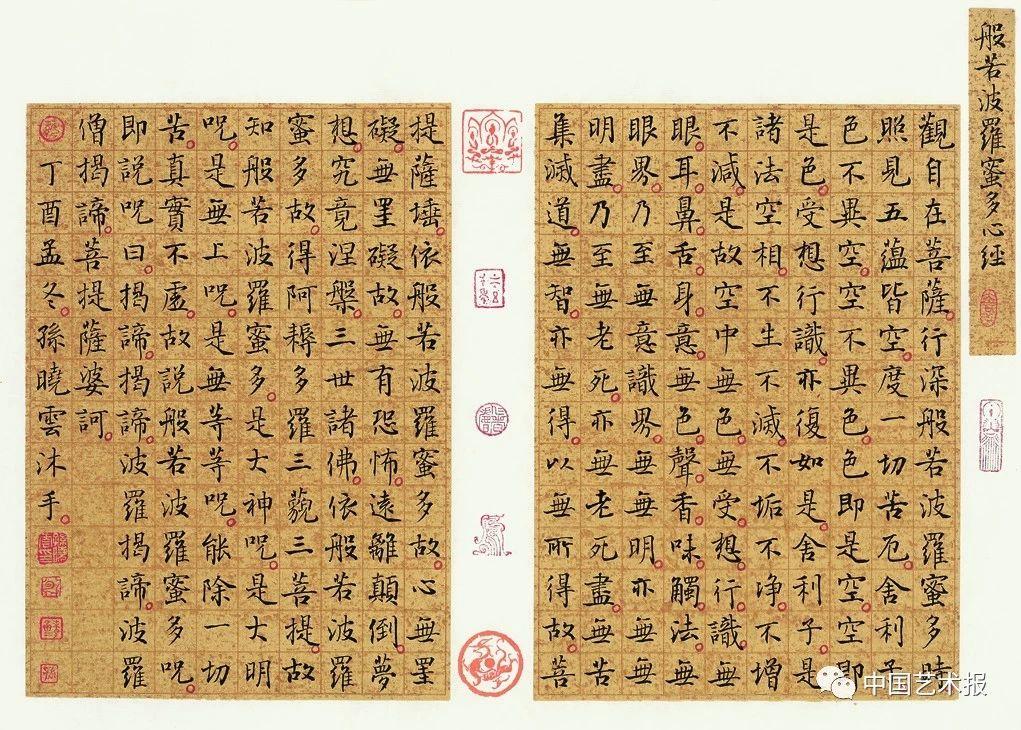 般若波羅蜜多心經
觀自在菩薩。行深般若波羅蜜多時
照見五蘊皆空。度一切苦厄。舍利子
色不異空。空不異色。色即是空。空即
是色。受想行識。亦復如是。舍利子。是
諸法空相。不生不滅。不垢不淨。不增
不減。是故空中無色。無受想行識。無
眼。耳。鼻。舌。身。意。無色。聲。香。味。觸。法。無
眼界。乃至無意識界。無無明。亦無無
明盡。乃至無老死。亦無老死盡。無苦
集滅道。無智。亦無得。以無所得故。菩
提薩埵。依般若波羅蜜多故。心無罣
礙。無罣礙故。無有恐怖。遠離顛倒。夢
想。究竟涅槃。三世諸佛。依般若波羅
蜜多故。得阿耨多羅三藐三菩提。故
知般若波羅蜜多。是大神呪。是大明
呪。是無上呪。是無等等呪。能除一切
苦。真實不虛。故說般若波羅蜜多呪。
即說呪曰。揭諦。揭諦。波羅揭諦。波羅
僧揭諦。菩提薩婆訶。
丁酉孟冬。孫曉雲沐手。
中国艺术报